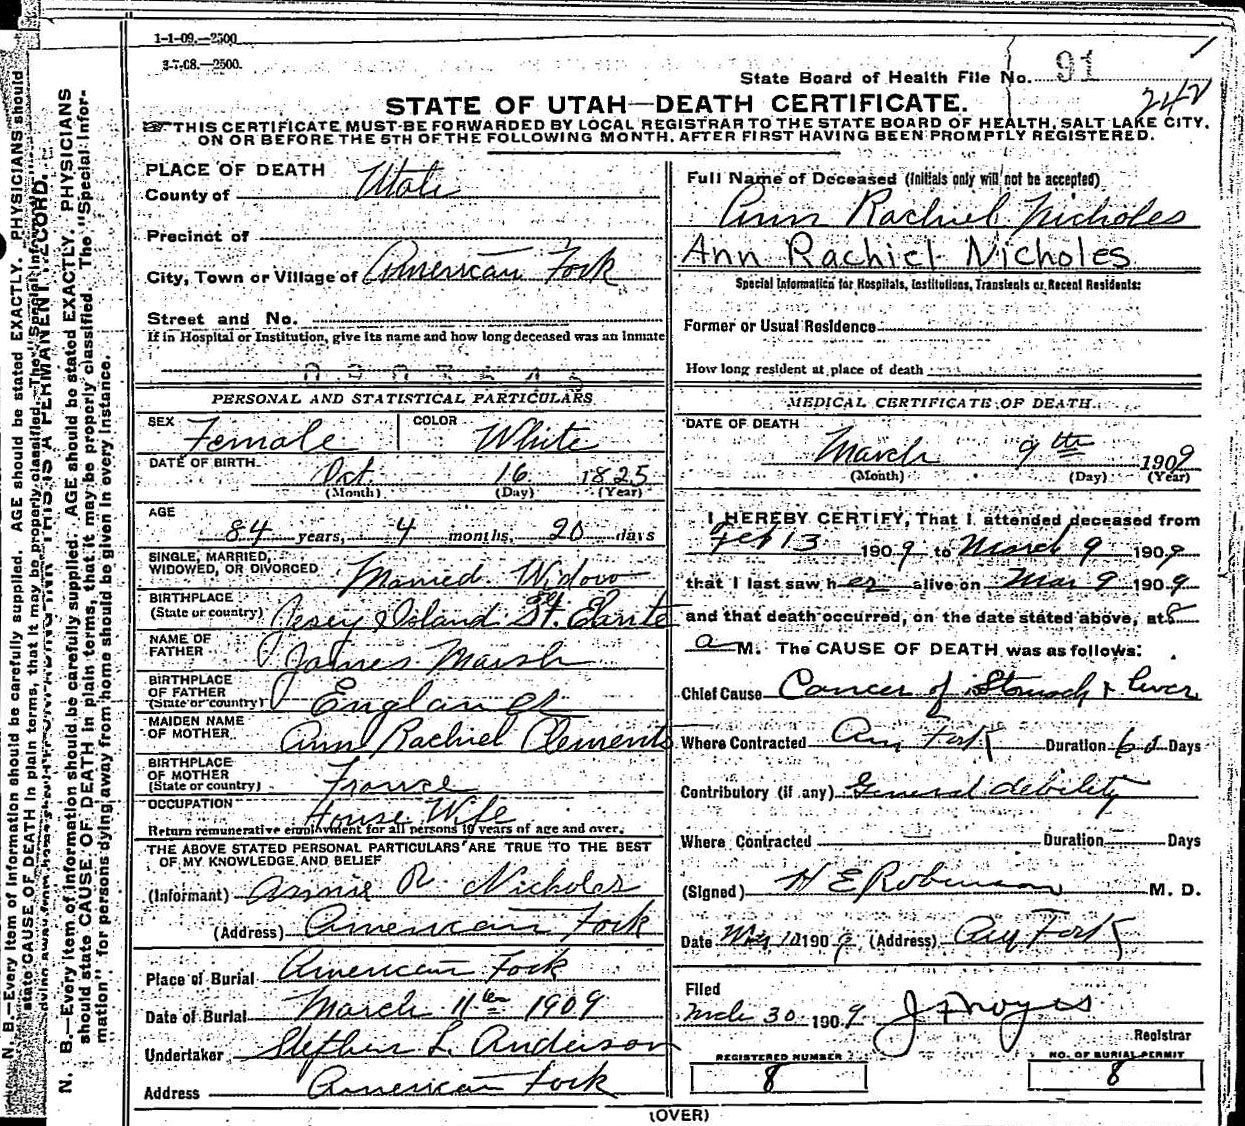 1-1-09.—2500
3-7-08.—2500.
State Board of Health File No. 91
242
STATE OF UTAH—DEATH CERTIFICATE.
THIS CERTIFICATE MUST BE FORWARDED BY LOCAL REGISTRAR TO THE STATE BOARD OF HEALTH, SALT LAKE CITY,
ON OR BEFORE THE 5TH OF THE FOLLOWING MONTH, AFTER FIRST HAVING BEEN PROMPTLY REGISTERED.
PLACE OF DEATH
County of Utah
Precinct of
City, Town or Village of American Fork
Street and No.
If in Hospital or Institution, give its name and how long deceased was an inmate
PERSONAL AND STATISTICAL PARTICULARS
SEX Female COLOR White
DATE OF BIRTH Oct 16 1825
(Month) (Day) (Year)
AGE
84 years, 4 months, 20 days
SINGLE, MARRIED,
WIDOWED, OR DIVORCED Married Widow
BIRTHPLACE
(State or country) Jersey Island St.
NAME OF
FATHER James Marsh
BIRTHPLACE
OF FATHER
(State or country) England
MAIDEN NAME
OF MOTHER Ann Rachiel Clements
BIRTHPLACE
OF MOTHER
(State or country) France
OCCUPATION House Wife
Return remunerative employment for all persons 10 years of age and over.
THE ABOVE STATED PERSONAL PARTICULARS ARE TRUE TO THE BEST
OF MY KNOWLEDGE AND BELIEF
(Informant) Annie R. Nicholes
(Address) American Fork
Place of Burial American Fork
Date of Burial March 11th 1909
Undertaker Stephen L. Anderson
Address American Fork
Full Name of Deceased (Initials only will not be accepted)
Ann Rachiel Nicholes
Ann Rachiel Nicholes
Special Information for Hospitals, Institutions, Transients or Recent Residents:
Former or Usual Residence
How long resident at place of death
MEDICAL CERTIFICATE OF DEATH
DATE OF DEATH
March 9th 1909
(Month) (Day) (Year)
I HEREBY CERTIFY, That I attended deceased from
Feb 13 1909 to March 9 1909
that I last saw her alive on Mar 9 1909
and that death occurred, on the date stated above, at 8
a M. The CAUSE OF DEATH was as follows:
Chief Cause Cancer of Stomach & liver
Where Contracted Am Fork Duration 60 Days
Contributory (if any) General debility
Where Contracted Duration Days
(Signed) H E Robinson M. D.
Date 10 1909 (Address) Am Fork
Filed
Mch 30 1909 J F Noyes
Registrar
REGISTERED NUMBER
8
NO. OF BURIAL PERMIT
8
(OVER)
N. B.—Every item of information should be carefully supplied. AGE should be stated EXACTLY. PHYSICIANS
should state CAUSE OF DEATH in plain terms, that it may be properly classified. The "Special Infor-
mation" for persons dying away from home should be given in every instance.
N. B.—Every item of information should be carefully supplied. AGE should be stated EXACTLY. PHYSICIANS should
state CAUSE OF DEATH in plain terms, that it may be properly classified. The "Special Information"
THIS IS A PERMANENT RECORD.